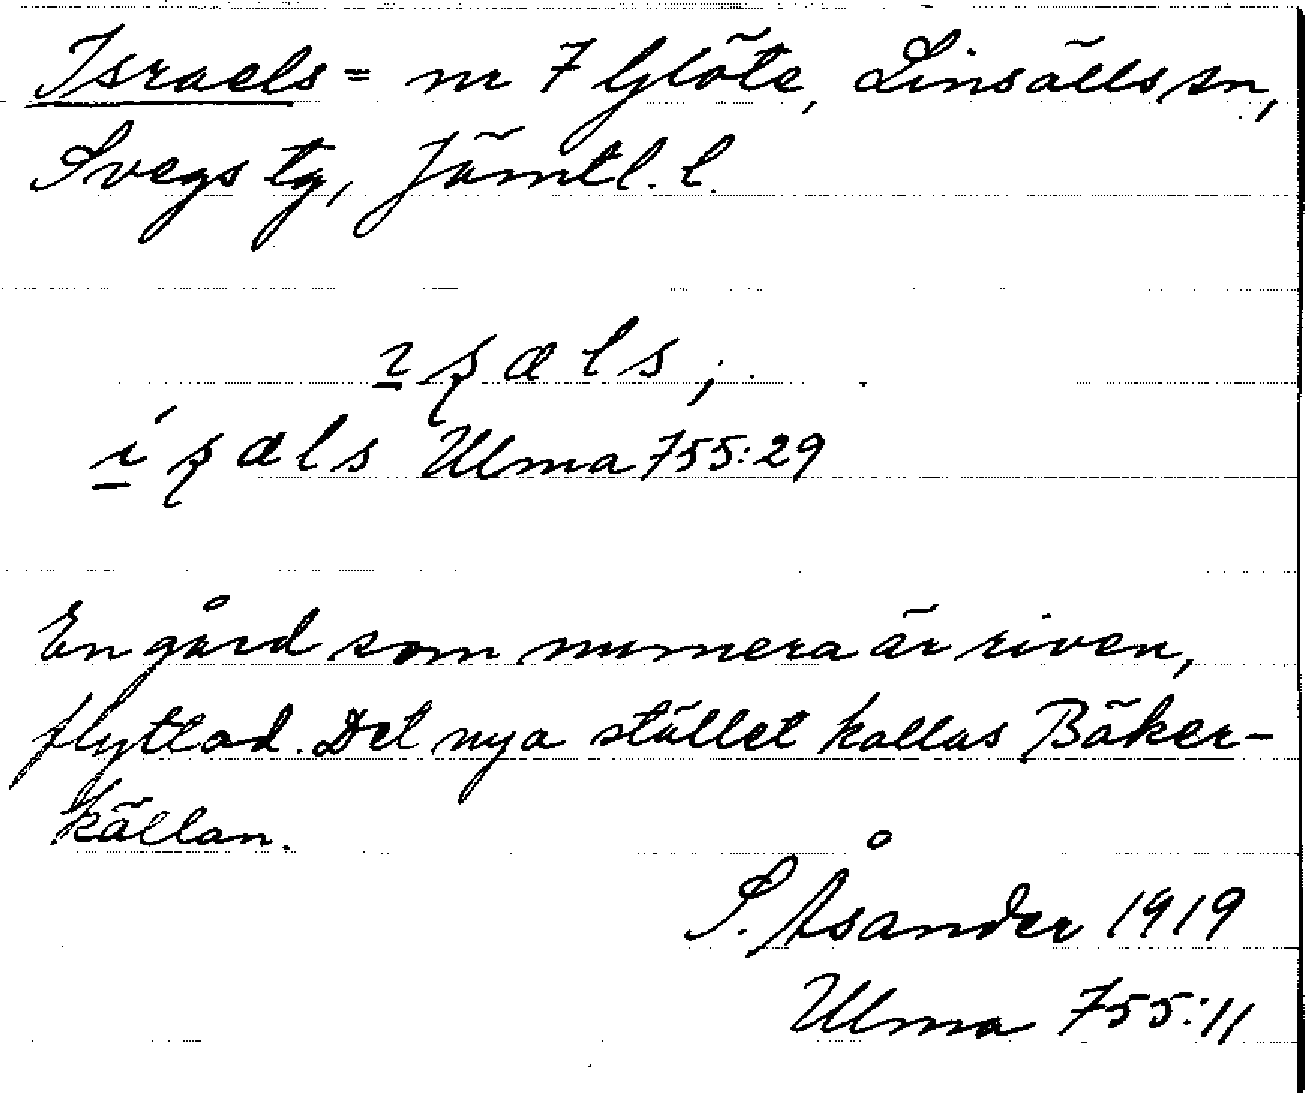 Israels = nr 7 Glöte, Linsälls sn,
Svegs tg, Jämtl. l.
Ulma 755:29
En gård som numera är riven,
flyttad. Det nya stället kallas Bäker-
källan.
S. Åsander 1919
Ulma 755:11